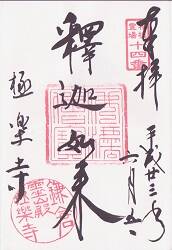 奉拝
十四番
平成廿三年
六月五日
釋迦如来
極楽寺
鎌倉
霊山殿
極楽寺